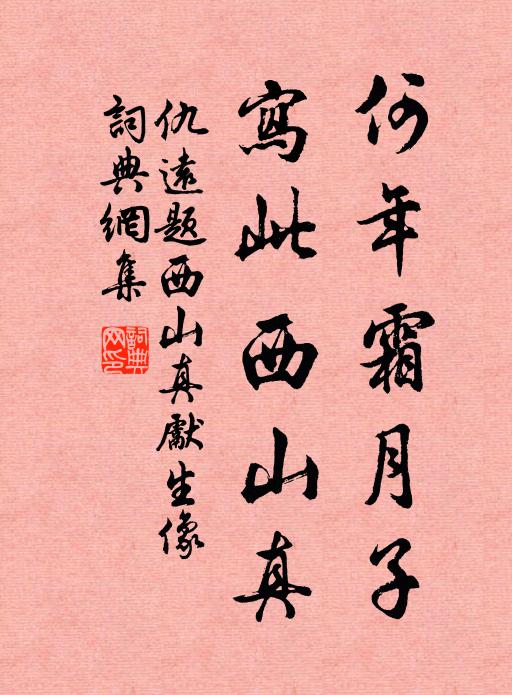 何年霜月子
寫此西山真
仇遠題西山真獻生像
詞典網集
詞典網印